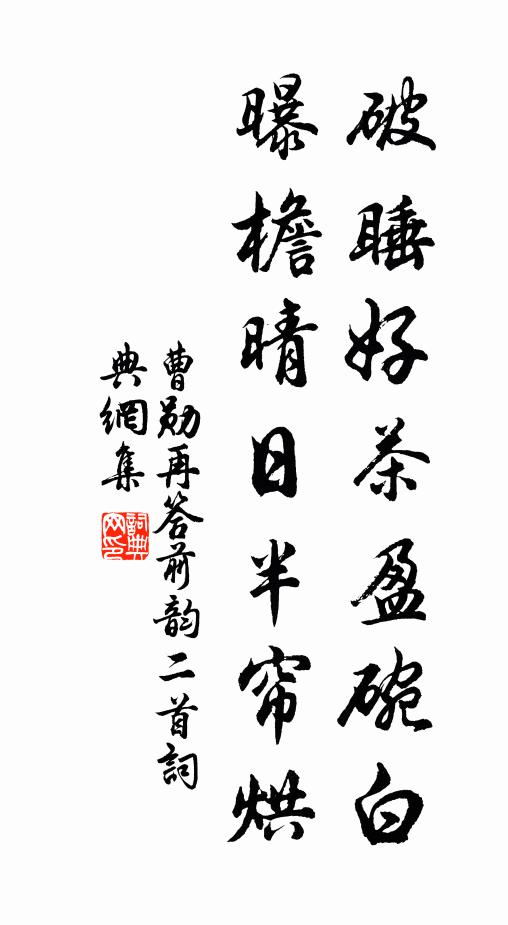 破睡好茶盈碗白
曝檐晴日半帘烘
曹勛再答前韵二首詞
典網集
詞典
网印